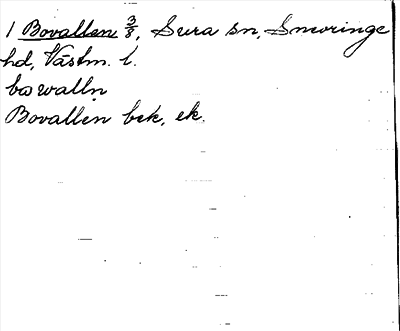 1 Bovallen 3/8, Sura sn, Snevringe
hd, Västm. l.
bo walln
Bovallen bek, ek.